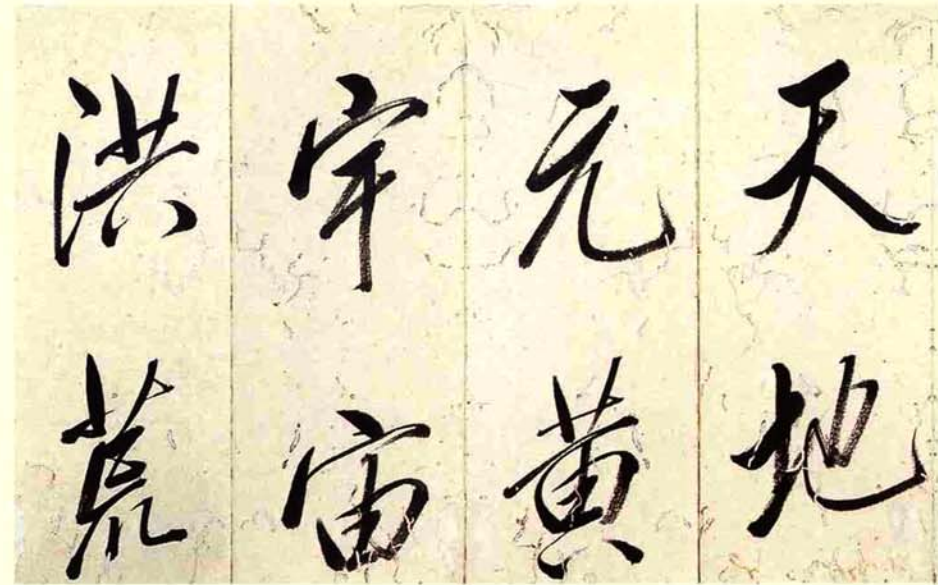 天地
元黄
宇宙
洪荒